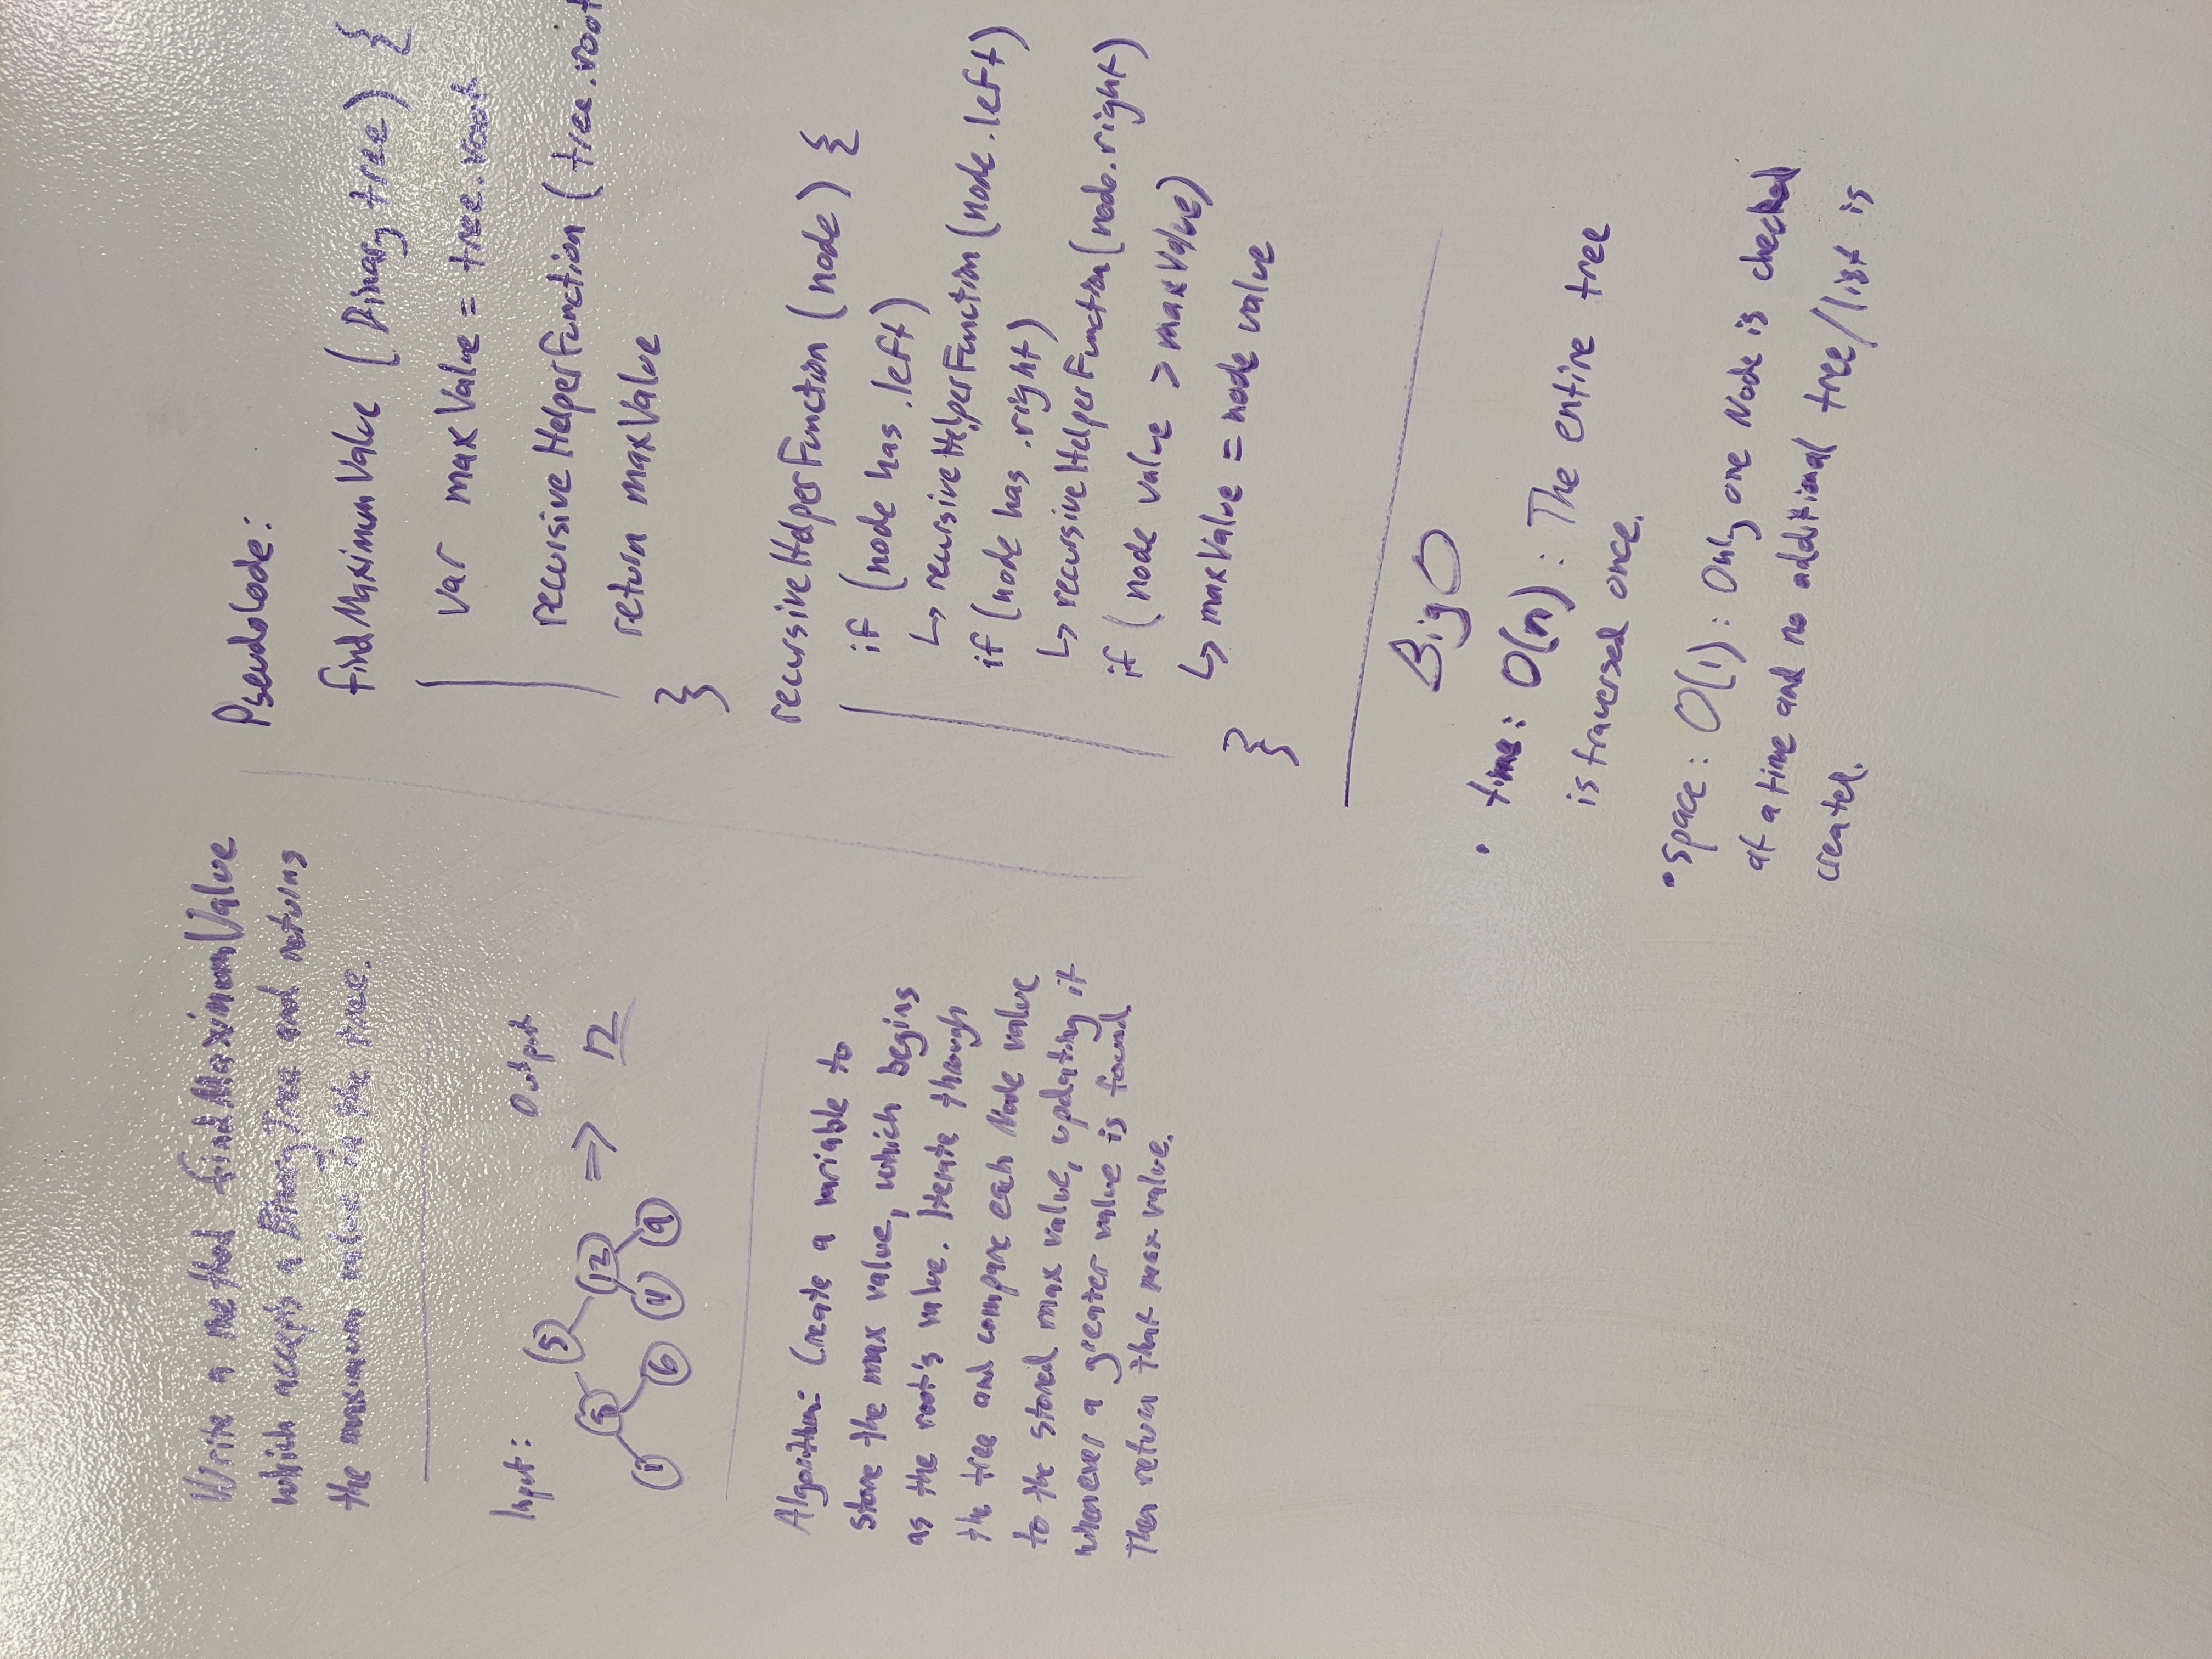 Write a method findMaximumValue
which accepts a BinaryTree and returns
the maximum value in the tree.
Input:
Output
5
8 12 => 12
1 6 4 9
Algorithm: Create a variable to
store the max value, which begins
as the root's value. Iterate through
the tree and compare each Node value
to the stored max value, updating it
whenever a greater value is found.
Then return that max value.
PseudoCode:
findMaximumValue (Binary tree) {
var maxValue = tree.root
recursiveHelperFunction (tree.root
return maxValue
}
recursiveHelperFunction (node) {
if (node has .left)
↳ recursiveHelperFunction (node.left)
if (node has .right)
↳ recursiveHelperFunction (node.right)
if (node value > maxValue)
↳ maxValue = node value
}
Big O
• time: O(n): The entire tree
is traversed once.
• space: O(1): Only one Node is checked
at a time and no additional tree/list is
created.